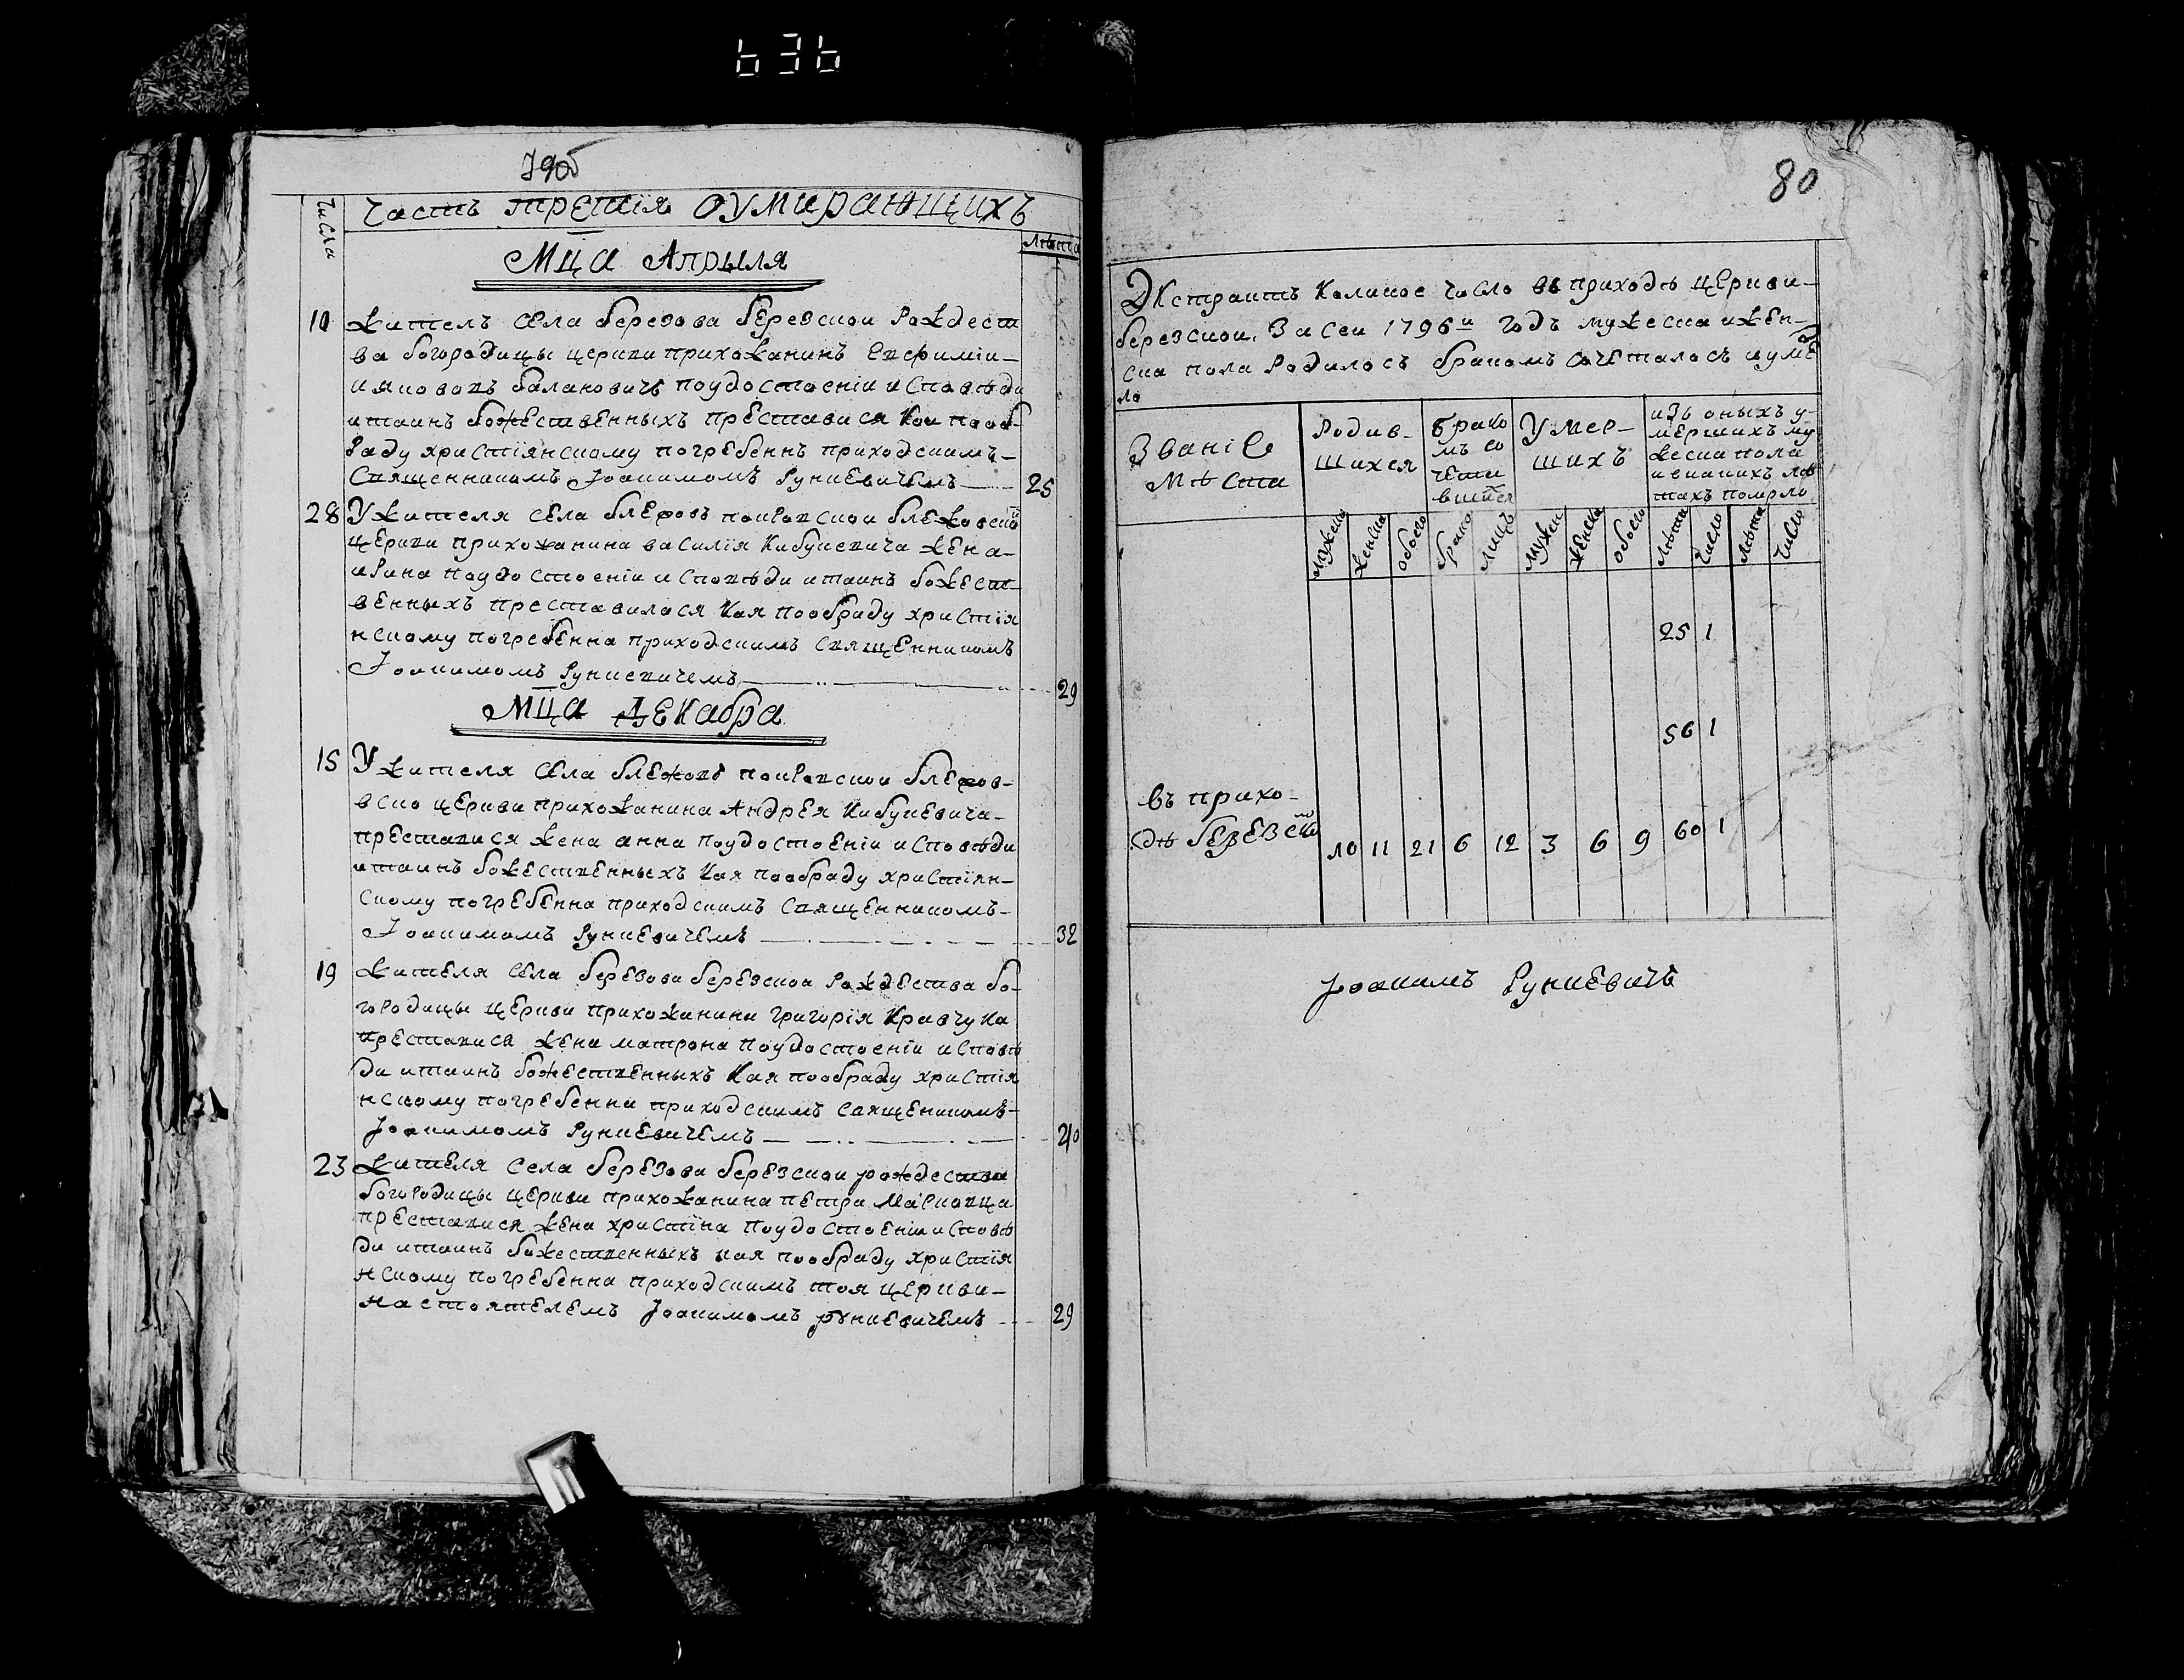 636
79об
Числа
Часть третія оумирающихъ
Лѣта
Мца Апрыля
10 житель села березова березской Рождест
ва богородицы церкви прихожанинъ Евфимій
Якововъ балановичъ по удостоеніи исповѣди
и таинъ божественныхъ преставися кой по об
раду християнскому погребеннъ приходскимъ
священникомъ Іоакимомъ Рункевичемъ 25
28 У жителя села блежовъ покровской блежовской
церкви прихожанина василія Кибукевича жена
ирина по удостоеніи исповѣди и таинъ божест
венныхъ преставилася кая по обраду християн
нскому погребенна приходскимъ священникомъ
Іоакимомъ Рункевичемъ 29
Мца Декабра
15 У жителя села блежовъ покровской блежов
вско церкви прихожанина Андрея Кибукевича
преставися жена анна по удостоеніи исповѣди
и таинъ божественныхъ кая по обраду християн
скому погребенна приходскимъ священникомъ
Іоакимомъ Рункевичемъ 32
19 жителя села березова березской Рождества бо
городицы церкви прихожанина григорія Кравчука
преставися жена матрона по удостоеніи исповѣ
ди и таинъ божественныхъ кая по обраду христия
нскому погребенна приходскимъ священикомъ
Іоакимомъ Рункевичемъ 40
23 жителя села березова березской рождества
богородицы церкви прихожанина петра
преставися жена христина по удостоеніи исповѣ
ди и таинъ божественныхъ кая по обраду христия
нскому погребенна приходскимъ тоя церкви
настоятелемъ Іоакимомъ рункевичемъ 29
80
Экстрактъ коликое число въ приходѣ церкви
березской за сей 1796й годъ мужеска и жен
ска пола родилось бракомъ сочеталось и умер
ло
Званіе Мѣста
Родившихся
бракомъ сочетавшися
Умершихъ
изъ оныхъ умершихъ мужеска пола и в какихъ лѣтахъ помрло
мужеска женска обоего брако лицъ мужеск женска обоего лѣта число лѣта число
25 1
56 1
въ прихо
дѣ березской 10 11 21 6 12 3 6 9 60 1
Іоакимъ Рункевичъ